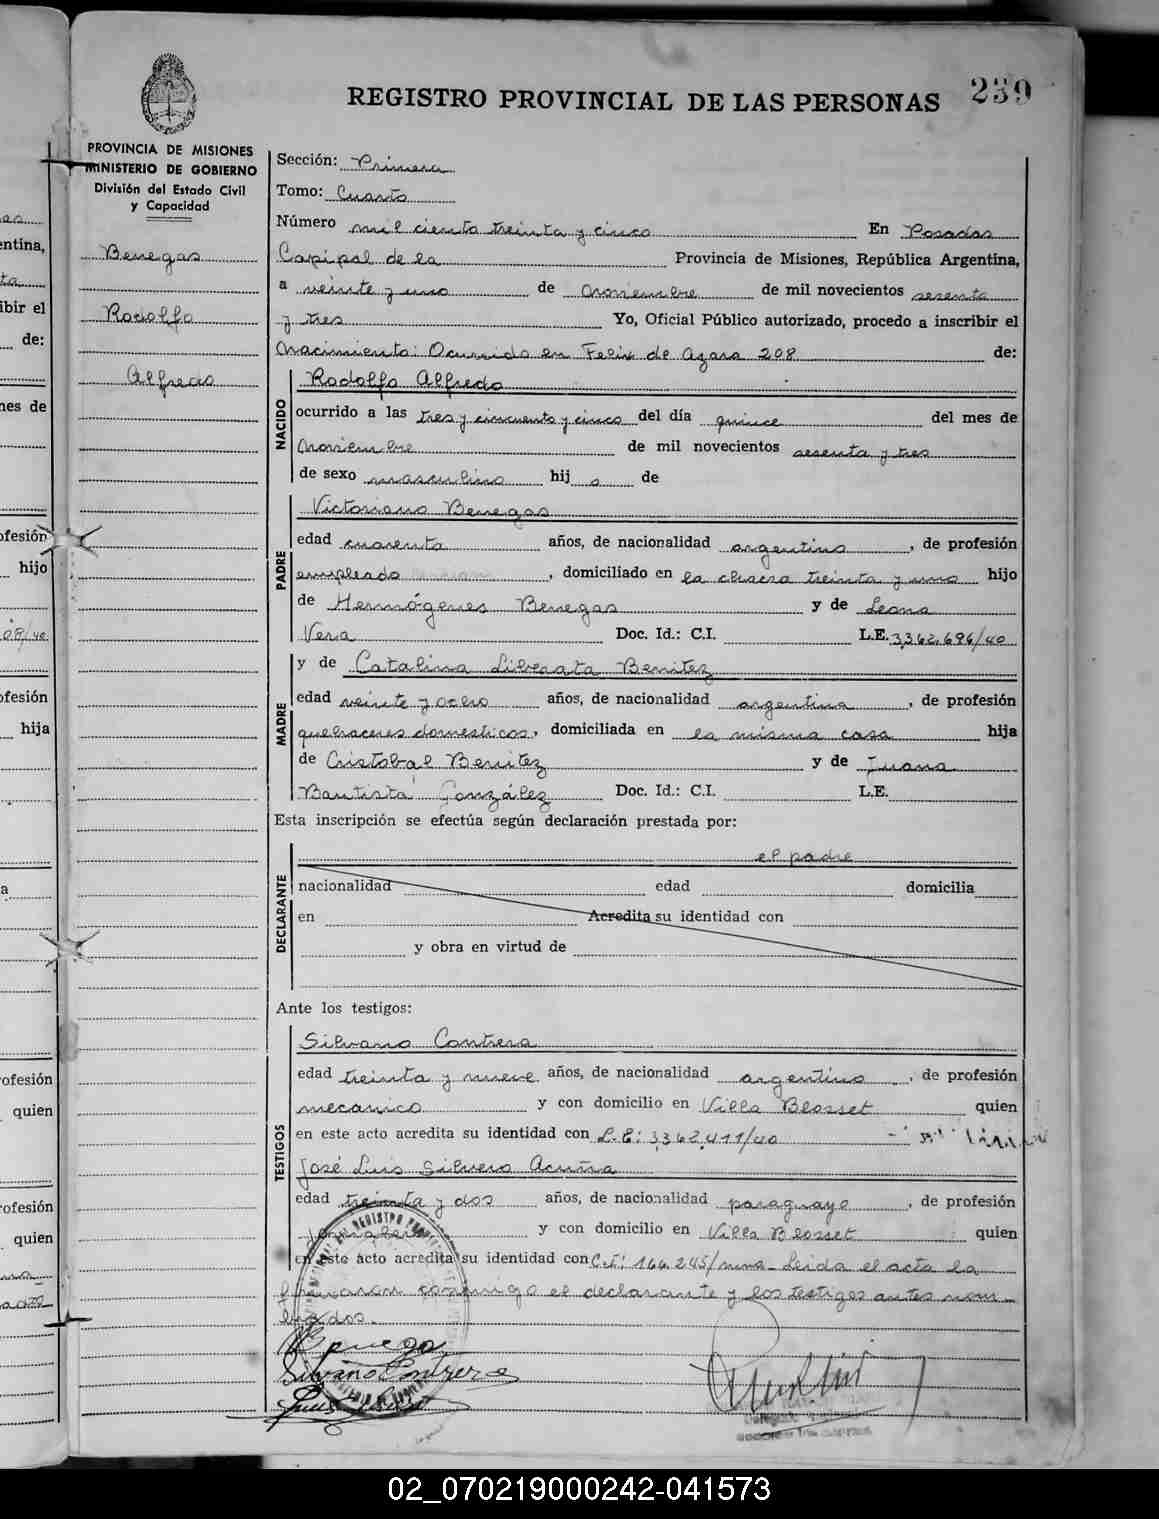 REGISTRO PROVINCIAL DE LAS PERSONAS 239
PROVINCIA DE MISIONES
MINISTERIO DE GOBIERNO
División del Estado Civil
y Capacidad
Benegas
Rodolfo
Alfredo
Sección: Primera
Tomo: Cuarto
Número mil ciento treinta y cinco En Posadas
Capipal de la Provincia de Misiones, República Argentina,
a veinte y uno de Noviembre de mil novecientos sesenta
y tres Yo, Oficial Público autorizado, procedo a inscribir el
Nacimiento: Ocurrido en Felix de Azara 208 de:
NACIDO
Rodolfo Alfredo
ocurrido a las tres y cincuenta y cinco del día quince del mes de
Noviembre de mil novecientos sesenta y tres
de sexo masculino hij o de
PADRE
Victoriano Benegas
edad cuarenta años, de nacionalidad argentino, de profesión
empleado, domiciliado en la chacra treinta y uno hijo
de Hermógenes Benegas y de Leona
Vera Doc. Id.: C.I. L.E. 3362.696/40
MADRE
y de Catalina Liberata Benitez
edad veinte y ocho años, de nacionalidad argentina, de profesión
quehaceres domesticos, domiciliada en la misma casa hija
de Cristobal Benitez y de Juana
Bautista González Doc. Id.: C.I. L.E.
Esta inscripción se efectúa según declaración prestada por:
DECLARANTE
el padre
nacionalidad edad domicilia
en Acredita su identidad con
y obra en virtud de
Ante los testigos:
TESTIGOS
Silvano Contrera
edad treinta y nueve años, de nacionalidad argentino, de profesión
mecánico y con domicilio en Villa Blosset quien
en este acto acredita su identidad con L.E: 3362.411/40
José Luis Silvero Acuña
edad treinta y dos años, de nacionalidad paraguayo, de profesión
y con domicilio en Villa Blosset quien
en este acto acredita su identidad con C.I: 166.245/mna- Leida el acta la
firmaron conmigo el declarante y los testigos antes nom-
brados.
Silvano Contrera
as
entina,
ta
ibir el
de:
nes de
ofesión
hijo
ofesión
hija
a
ofesión
quien
ofesión
quien
02_070219000242-041573